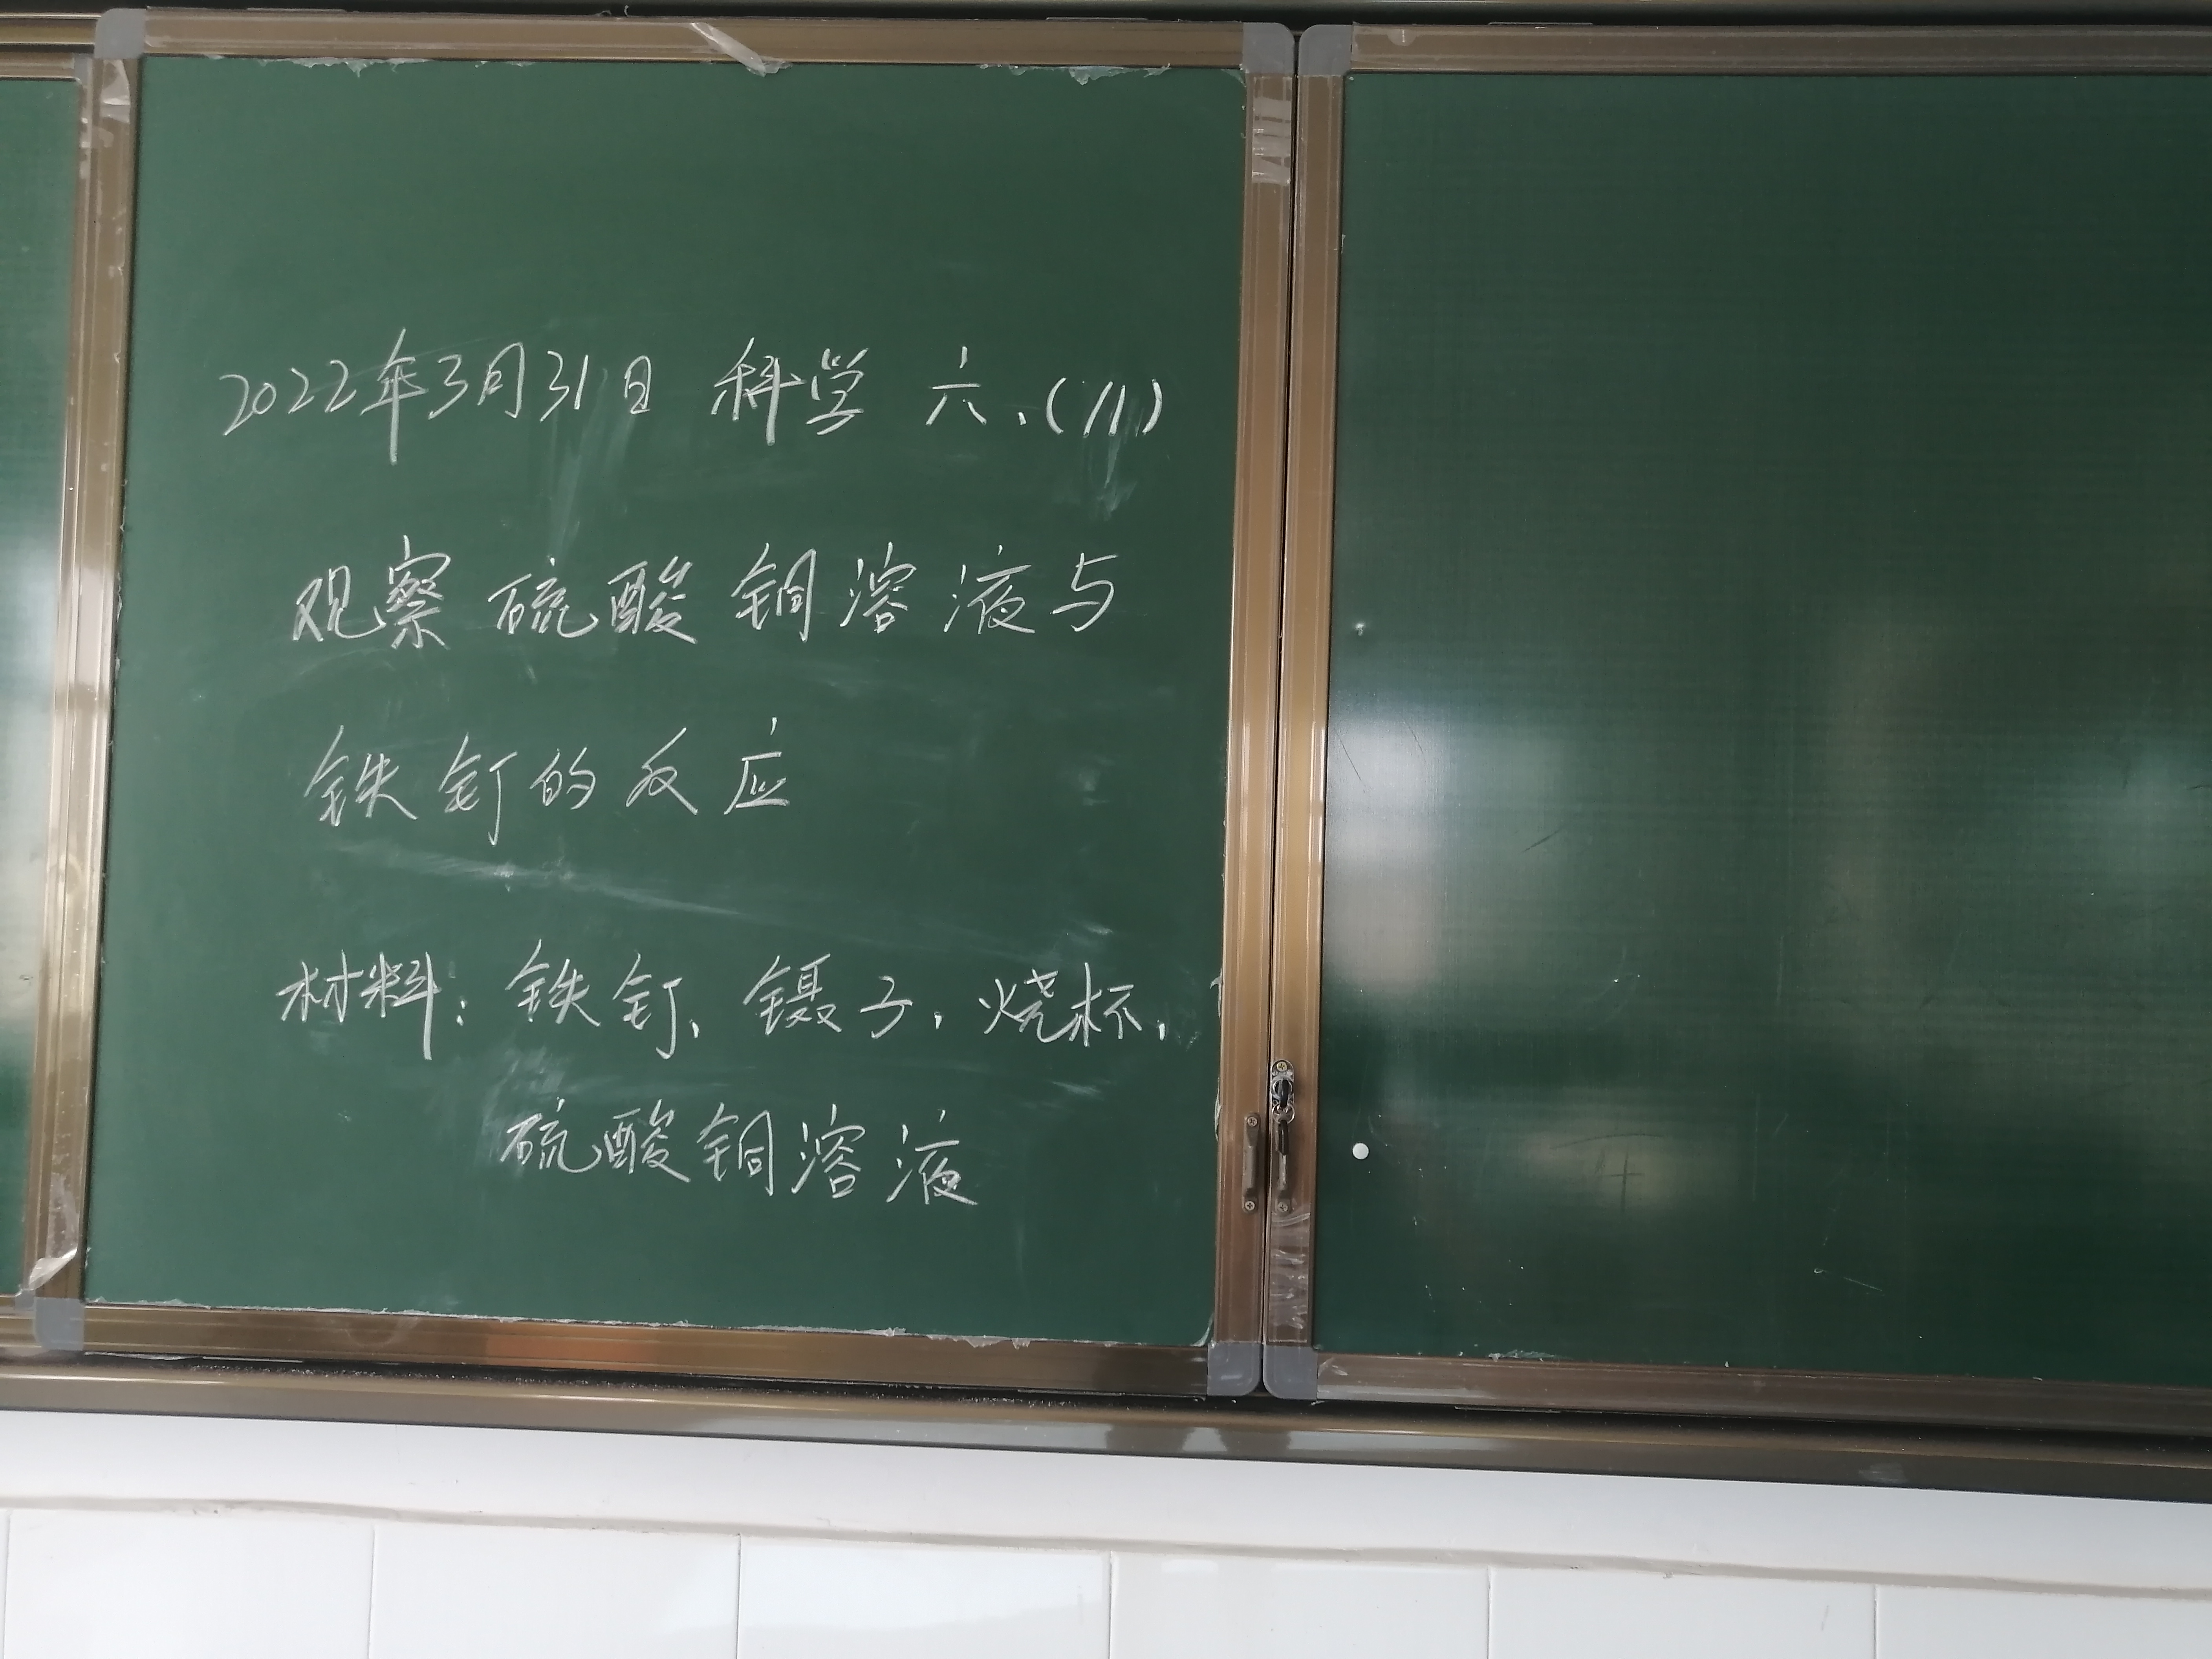 2022年3月31日 科学 六、(11)
观察硫酸铜溶液与
铁钉的反应
材料：铁钉、镊子、烧杯、
硫酸铜溶液